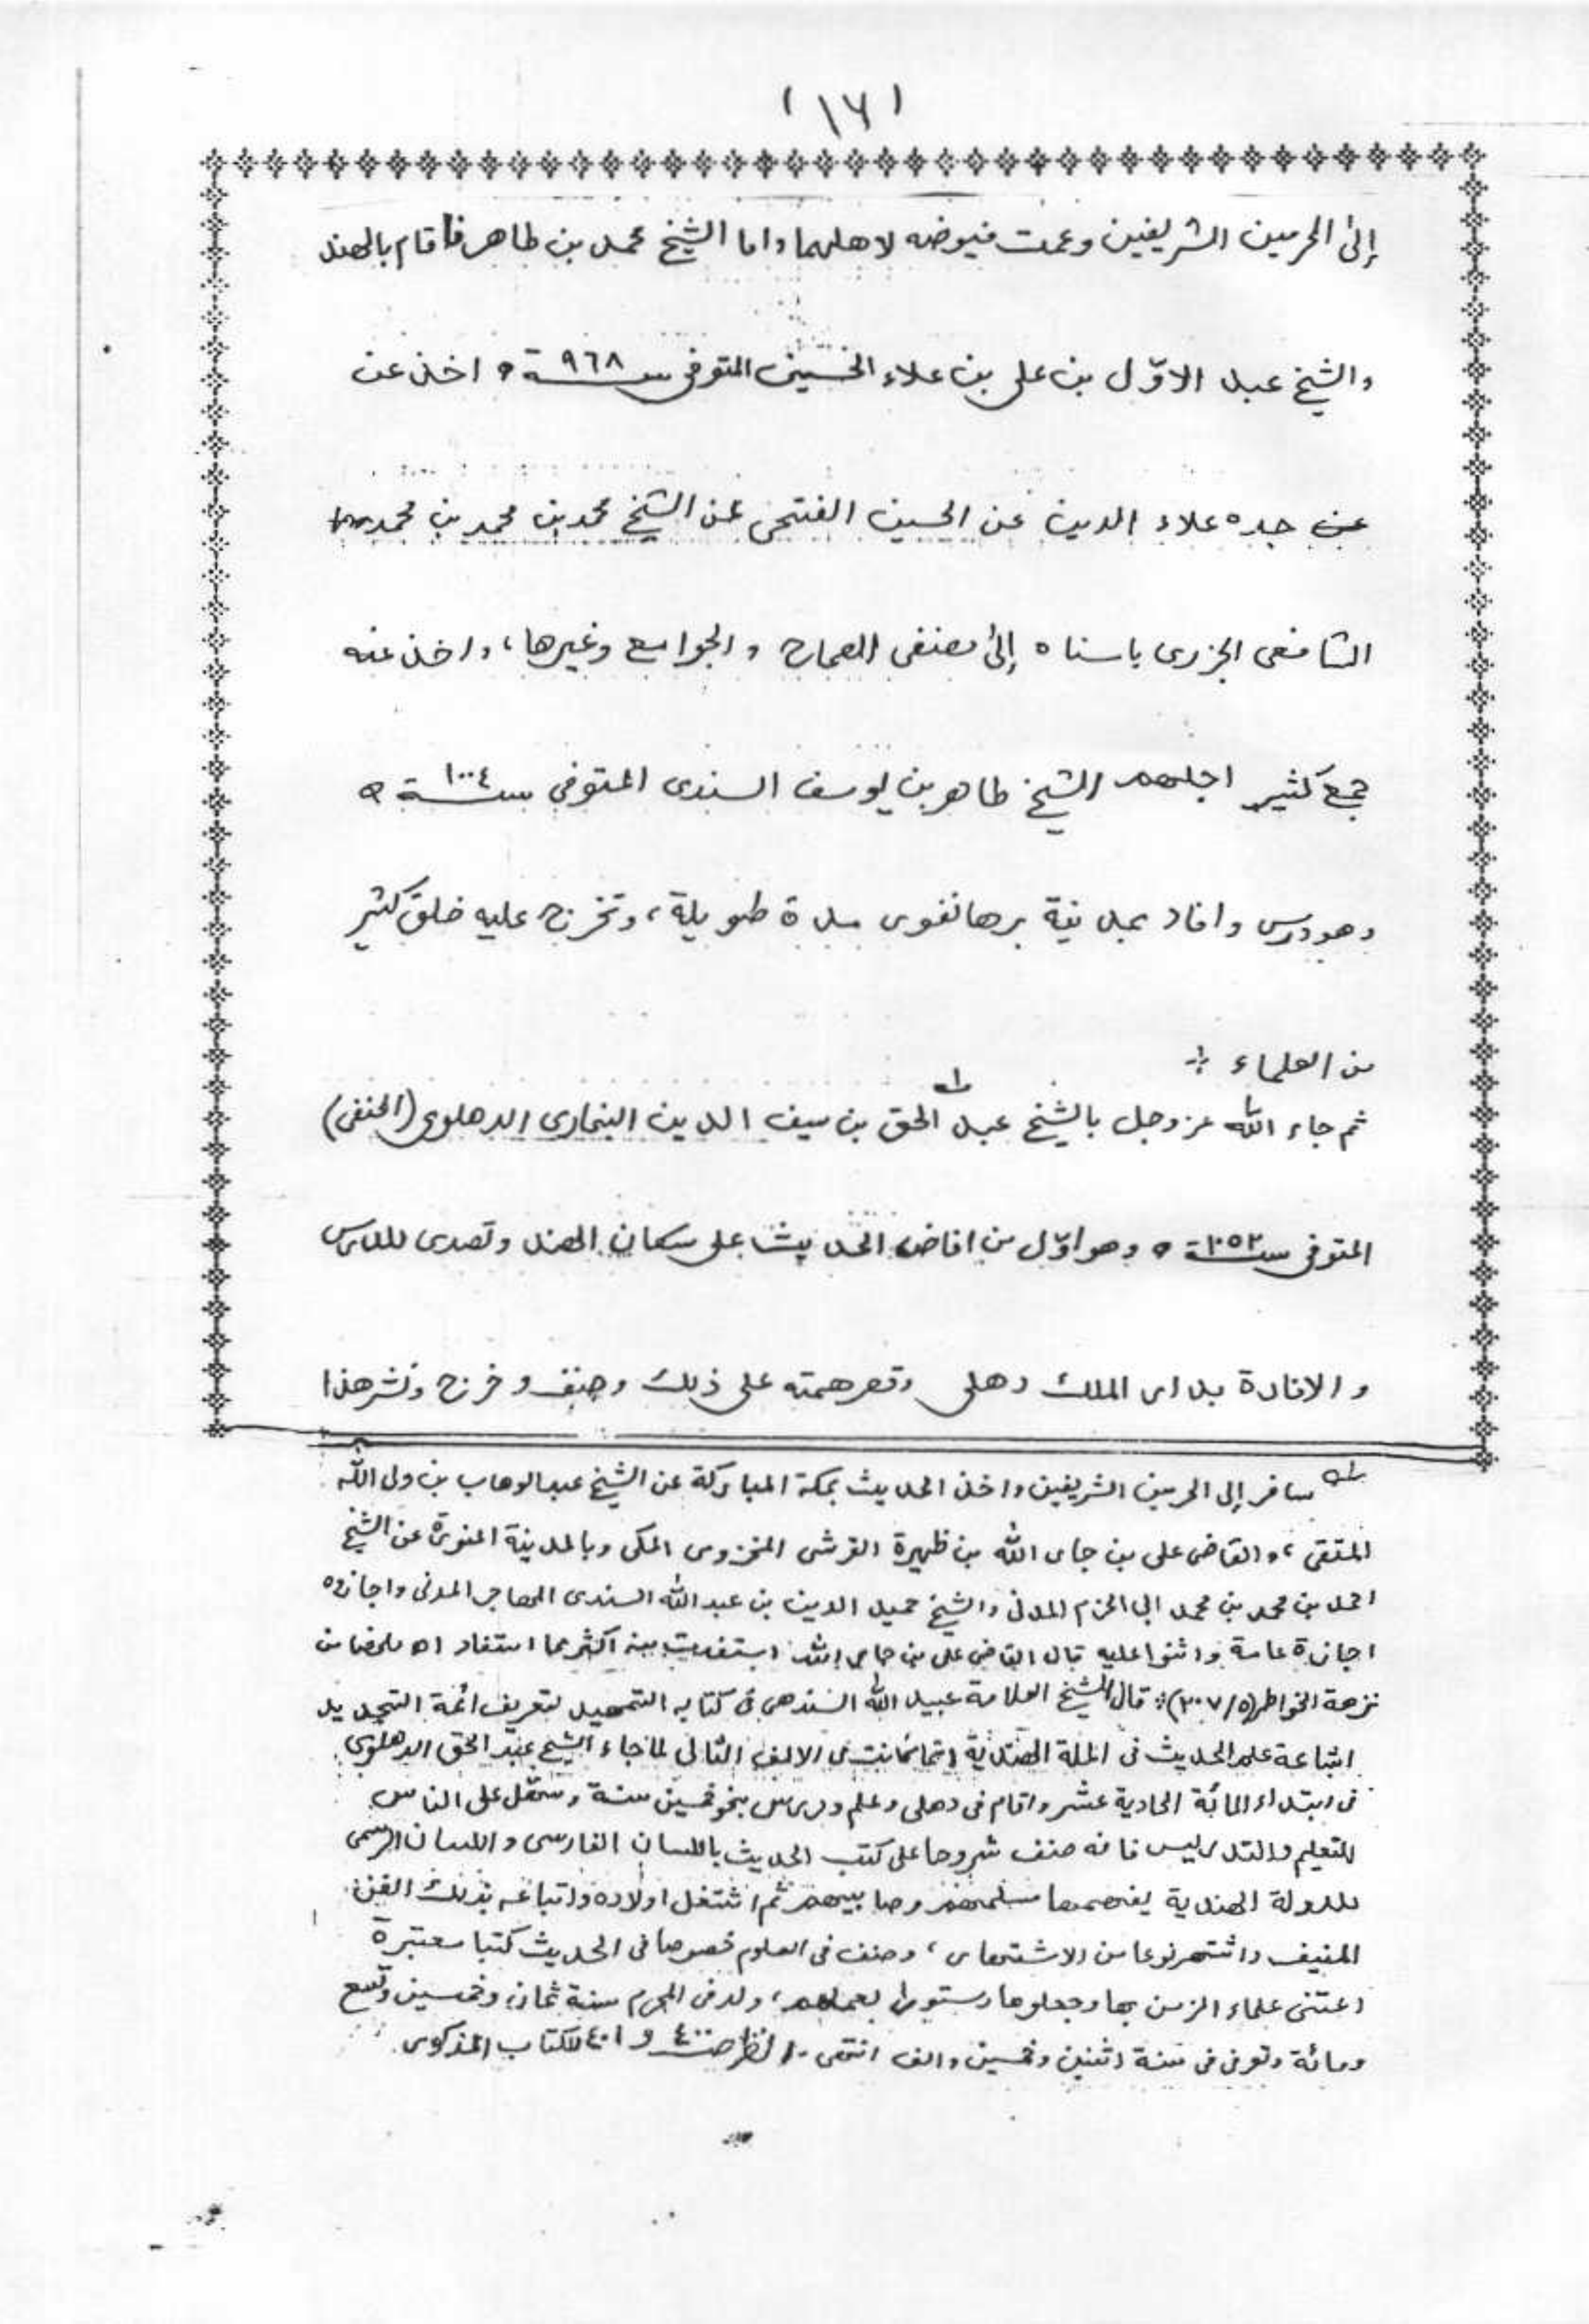 (١٦)
إلى الحرمين الشريفين وعمت فيوضه لاهلهما واما الشيخ محمد بن طاهر فاقام بالهند
والشيخ عبد الاوّل بن على بن علاء الحسينى المتوفى سـ٩٦٨ـنة ه اخذ عن
عن جده علاء الدين عن الحسين الفتحى عن الشيخ محمد بن محمد بن محمد
الشافعى الجزرى باسناه إلى مصنفى الصحاح والجوامع وغيرها، واخذ عنه
جمع كثير اجلهم الشيخ طاهر بن يوسف السندى المتوفى سـ١٠٠٤ـنة ه
وهو درس وافاد بمدينة برهانفور مدة طويلة، وتخرج عليه خلق كثير
من العلماء ÷
ثم جاء الله عز وجل بالشيخ عبد الحق بن سيف الدين البخارى الدهلوى (الحنفى)
المتوفى سـ١٠٥٢ـنة ه وهو اوّل من افاض الحديث على سكان الهند وتصدى للدرس
و الافادة بدار الملك دهلى وقصر همته على ذلك وصنف وخرج ونشر هذا
له سافر إلى الحرمين الشريفين واخذ الحديث بمكة المباركة عن الشيخ عبدالوهاب بن ولى الله
المتقى، والقاضى على بن جار الله بن ظهيرة القرشى المخزومى المكى وبالمدينة المنورة عن الشيخ
احمد بن محمد بن محمد ابى الحزم المدنى والشيخ حميد الدين بن عبد الله السندى المهاجر المدنى واجازوه
اجازة عامة واثنوا عليه قال القاضى على بن جار الله: استفدت منه اكثر مما استفاد اه ملخصا من
نزهة الخواطر (٥/٢٠٧) ÷ قال الشيخ العلامة عبيد الله السندهى فى كتابه التمهيد لتعريف ائمة التجديد
اشاعة علم الحديث فى الملة الهندية انما كانت فى الالف الثانى لما جاء الشيخ عبد الحق الدهلوى
فى ابتداء المائة الحادية عشر واقام فى دهلى وعلم ودرس نحو خمسين سنة وسهّل على الناس
للتعليم والتدريس فانه صنف شروحا على كتب الحديث باللسان الفارسى واللسان الرسمى
للدولة الهندية يفهمها مسلمهم وصابيهم ثم اشتغل اولاده واتباعه بذلك الفن
المنيف واشتهر نوعا من الاشتهار، وصنف فى العلوم خصوصا فى الحديث كتبا معتبرة
اعتنى علماء الزمن بها وجعلوها دستورا لعملهم، ولد فى المحرم سنة ثمان وخمسين وتسع
ومائة وتوفى فى سنة اثنين وخمسين والف انتهى - انظر صـ ٤٠٠ و ٤٠١ للكتاب المذكور.